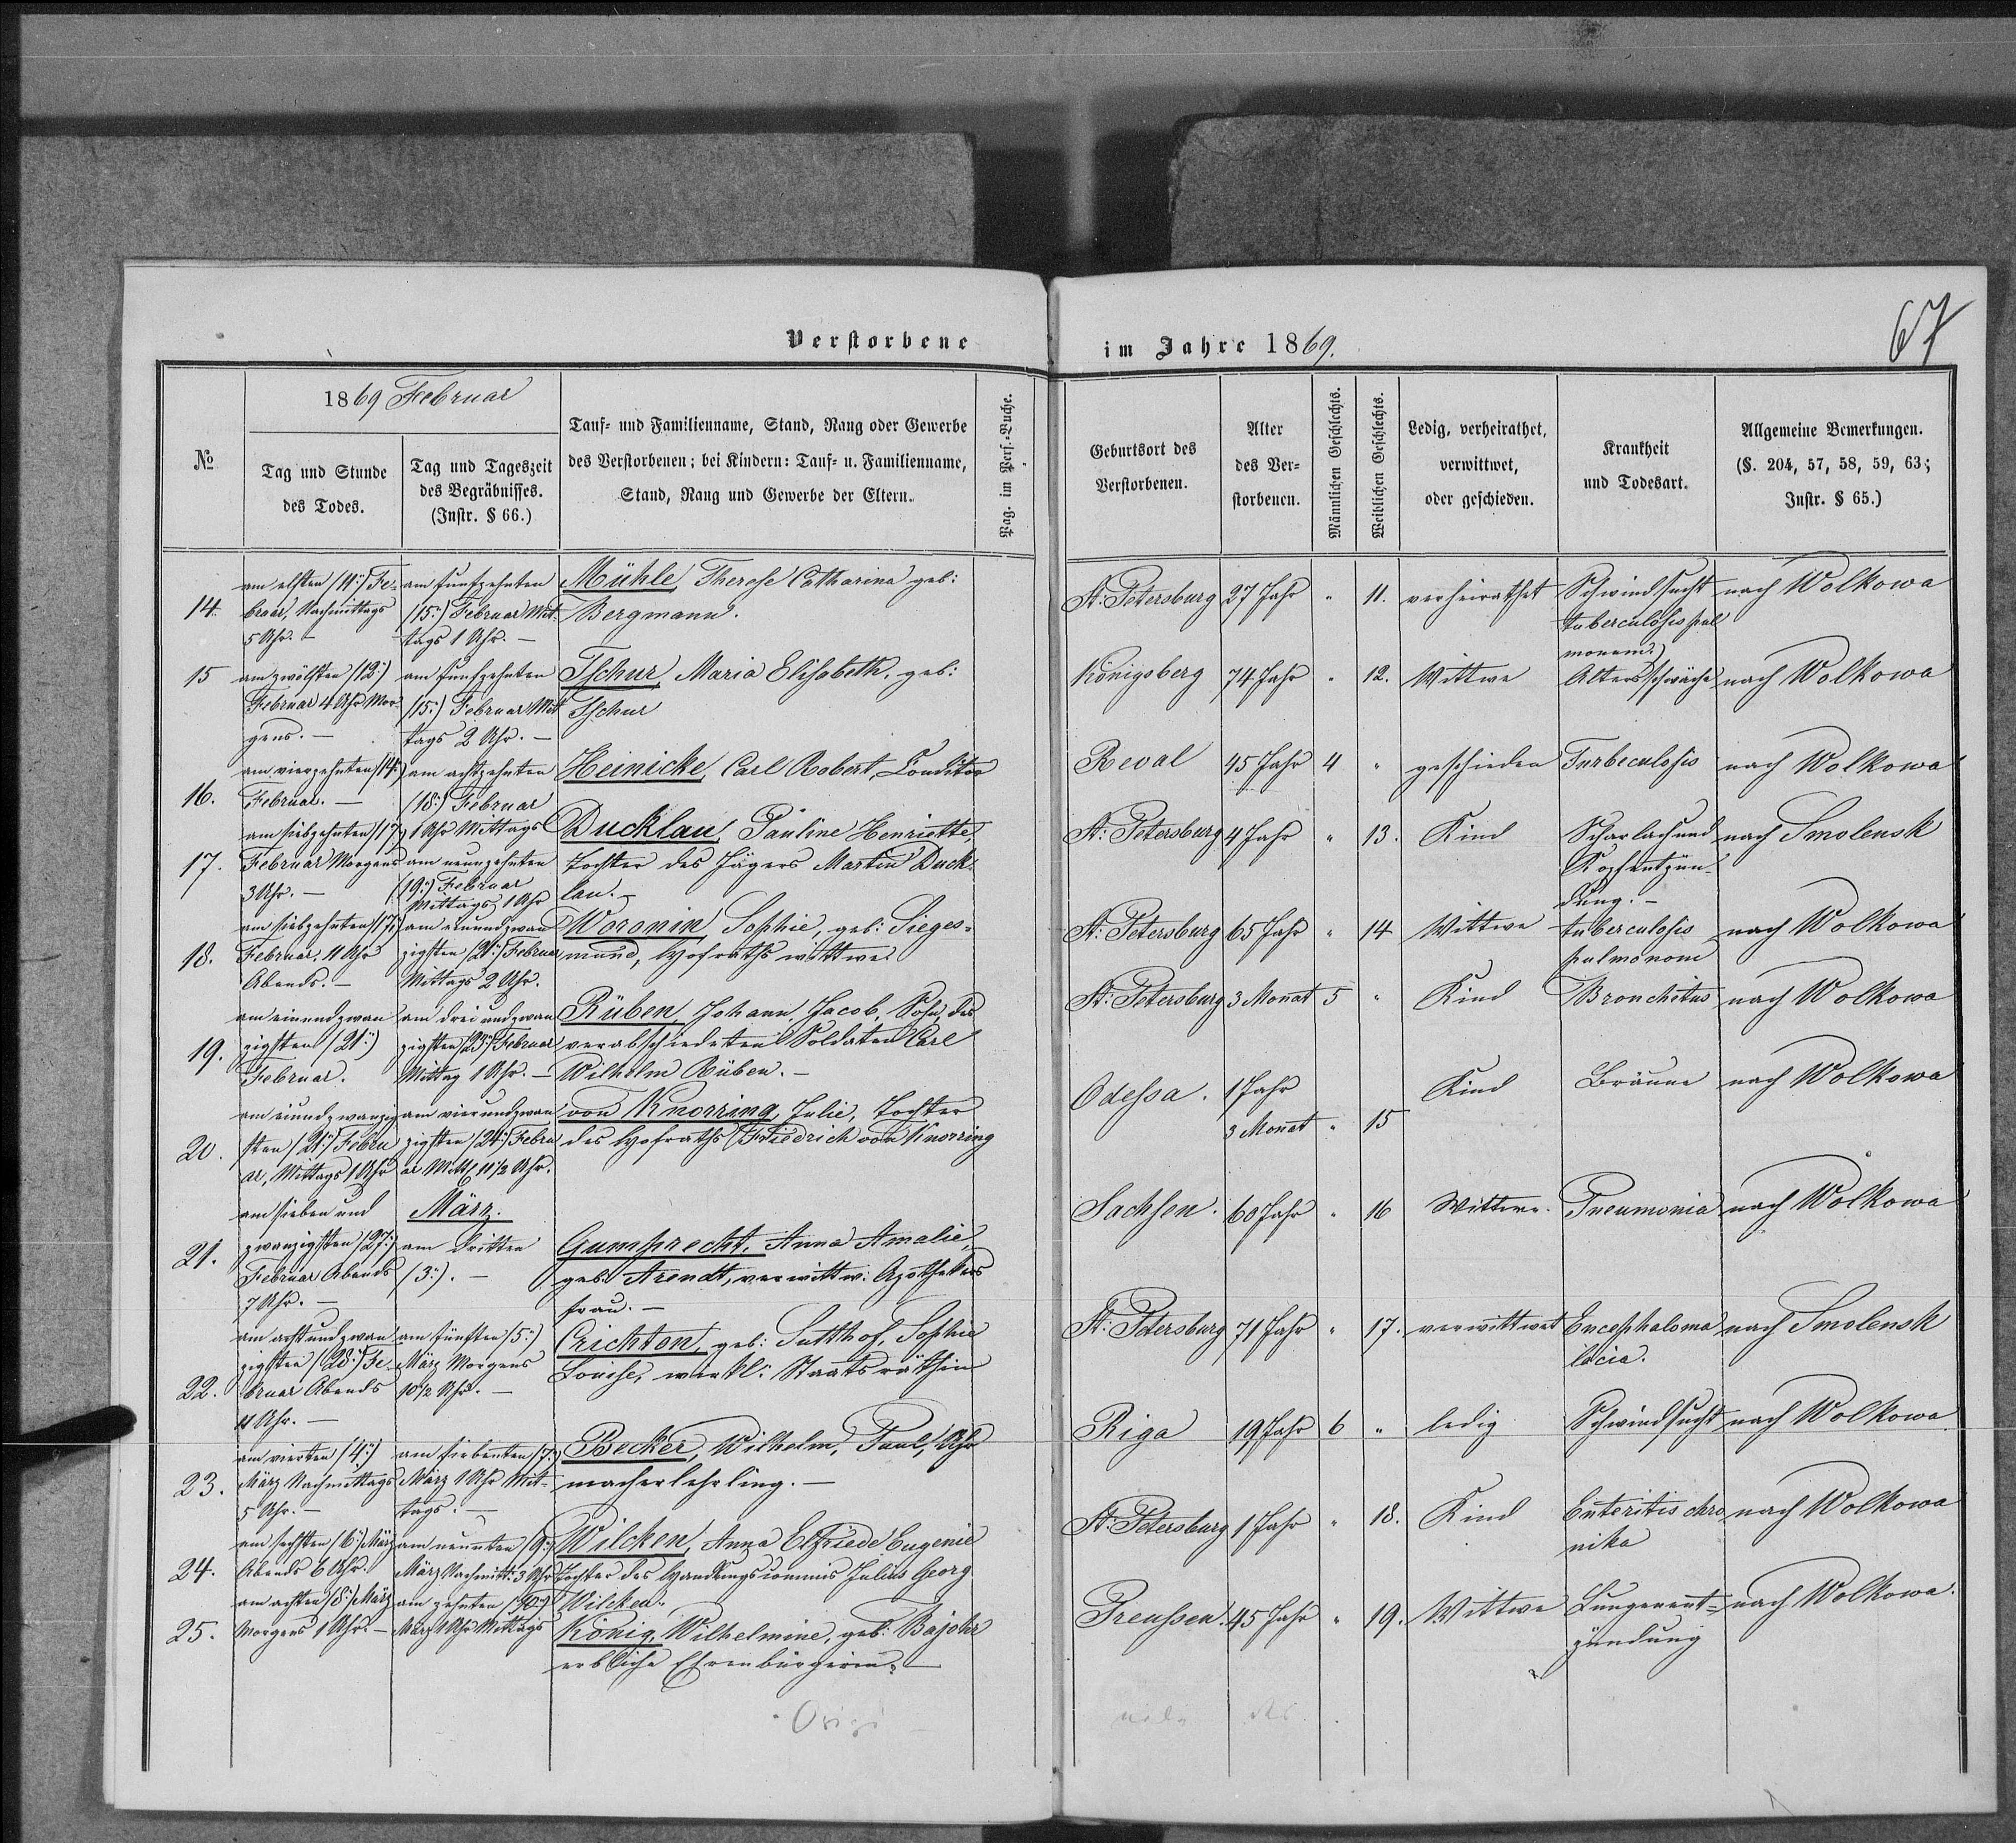 67
Verstorbene im Jahre 1869.
№
1869 Februar
Tag und Stunde
des Todes.
Tag und Tageszeit
des Begräbnisses.
(Instr. § 66.)
Tauf- und Familienname, Stand, Rang oder Gewerbe
des Verstorbenen; bei Kindern: Tauf- u. Familienname,
Stand, Rang und Gewerbe der Eltern.
Pag. im Pers.-Buche.
Geburtsort des
Verstorbenen.
Alter
des Ver-
storbenen.
Männlichen Geschlechts.
Weiblichen Geschlechts.
Ledig, verheirathet,
verwittwet,
oder geschieden.
Krankheit
und Todesart.
Allgemeine Bemerkungen.
(§. 204, 57, 58, 59, 63;
Instr. § 65.)
14.
am elften (11:) Fe-
bruar, Nachmittags
5 Uhr. –
am funfzehnten
(15:) Februar Mit-
tags 1 Uhr. –
Mühle, Therese Catharina geb:
Bergmann.
St: Petersburg
27 Jahr
"
11.
verheirathet
Schwindsucht
tuberculosis pul
monum)
nach Wolkowa
15
am zwölften (12:)
Februar 4 Uhr Mor-
gens. –
am funfzehnten
(15:) Februar Mit
tags 2 Uhr. –
Tschur, Maria Elisabeth, geb:
Tschur
Königsberg
74 Jahr
"
12.
Wittwe
Altersschwäche
nach Wolkowa
16.
am vierzehnten (14:)
Februar. –
am achtzehnten
(18:) Februar
1 Uhr Mittags
Heinicke, Carl Robert, Conditor
Reval
45 Jahr
4
"
geschieden
Turbeculosis
nach Wolkowa
17.
am siebzehnten (17:)
Februar Morgens
3 Uhr. –
am neunzehnten
(19:) Februar
Mittags 1 Uhr
Ducklau, Pauline Henriette,
Tochter des Jägers Martin Duck-
lau. –
St: Petersburg
4 Jahr
"
13.
Kind
Scharlach und
Kopfentzün-
dung. –
nach Smolensk
18.
am siebzehnten (17:)
Februar, 11 Uhr
Abends. –
am einundzwan
zigsten (21:) Februar
Mittags 2 Uhr.
Woronin, Sophie, geb: Sieges-
mund, Hofraths wittwe
St: Petersburg
65 Jahr
"
14
Wittwe
tuberculosis
pulmonom
nach Wolkowa
19.
am einundzwan
zigsten (21:)
Februar.
am dreiundzwan
zigsten (23:) Februar
Mittag 1 Uhr. –
Rüben, Johann, Jacob, Sohn des
verabschiedeten Soldaten Carl
Wilhelm Rüben. –
St: Petersburg
3 Monat
5
"
Kind
Bronchitus
nach Wolkowa
20.
am einundzwanzig
sten (21:) Febru
ar, Mittags 1 Uhr
am vierundzwan
zigsten (24:) Febru
ar Mitt: 11½ Uhr.
von Knorring, Julie, Tochter
des Hofraths Friedrich von Knorring
Odessa.
1 Jahr
3 Monat
"
15
Kind
Bräune
nach Wolkowa
21.
am sieben und
zwanzigsten (27:)
Februar Abends
7 Uhr. –
März.
am dritten
(3:). –
Gumprecht, Anna Amalie,
geb: Arendt, verwittw: Apothekers
frau. –
Sachsen.
60 Jahr
"
16
Wittwe.
Pneumonia
nach Wolkowa
22.
am achtundzwan
zigsten (28:) Fe
bruar Abends
11 Uhr. –
am fünften (5:)
März Morgens
10½ Uhr. –
Crichton, geb: Sutthof, Sophie
Louise, wirkl: Staatsräthin
St: Petersburg
71 Jahr
"
17.
verwittwet
Encephaloma
lacia.
nach Smolensk
23.
am vierten (4:)
März Nachmittags
5 Uhr. –
am siebenten (7:)
März 1 Uhr Mit-
tags. –
Becker, Wilhelm, Paul, Uhr
macherlehrling. –
Riga
19 Jahr
6
"
ledig
Schwindsucht
nach Wolkowa
24.
am sechsten (6:) März
Abends 6 Uhr.
am neunten (9:)
März Nachmitt: 3 Uhr
Wilcken, Anna Elfriede Eugenie
Tochter des Handlungscommis Julius Georg
Wilcken.
St: Petersburg
1 Jahr
"
18.
Kind
Enteritis chro
nika
nach Wolkowa
25.
am achten (8:) März
Morgens 1 Uhr. –
am zehnten (10:)
März 1 Uhr Mittags
König, Wilhelmine, geb: Bajohr
erbliche Ehrenbürgerin. –
Preussen.
45 Jahr
"
19.
Wittwe
Lungenent-
zündung
nach Wolkowa.